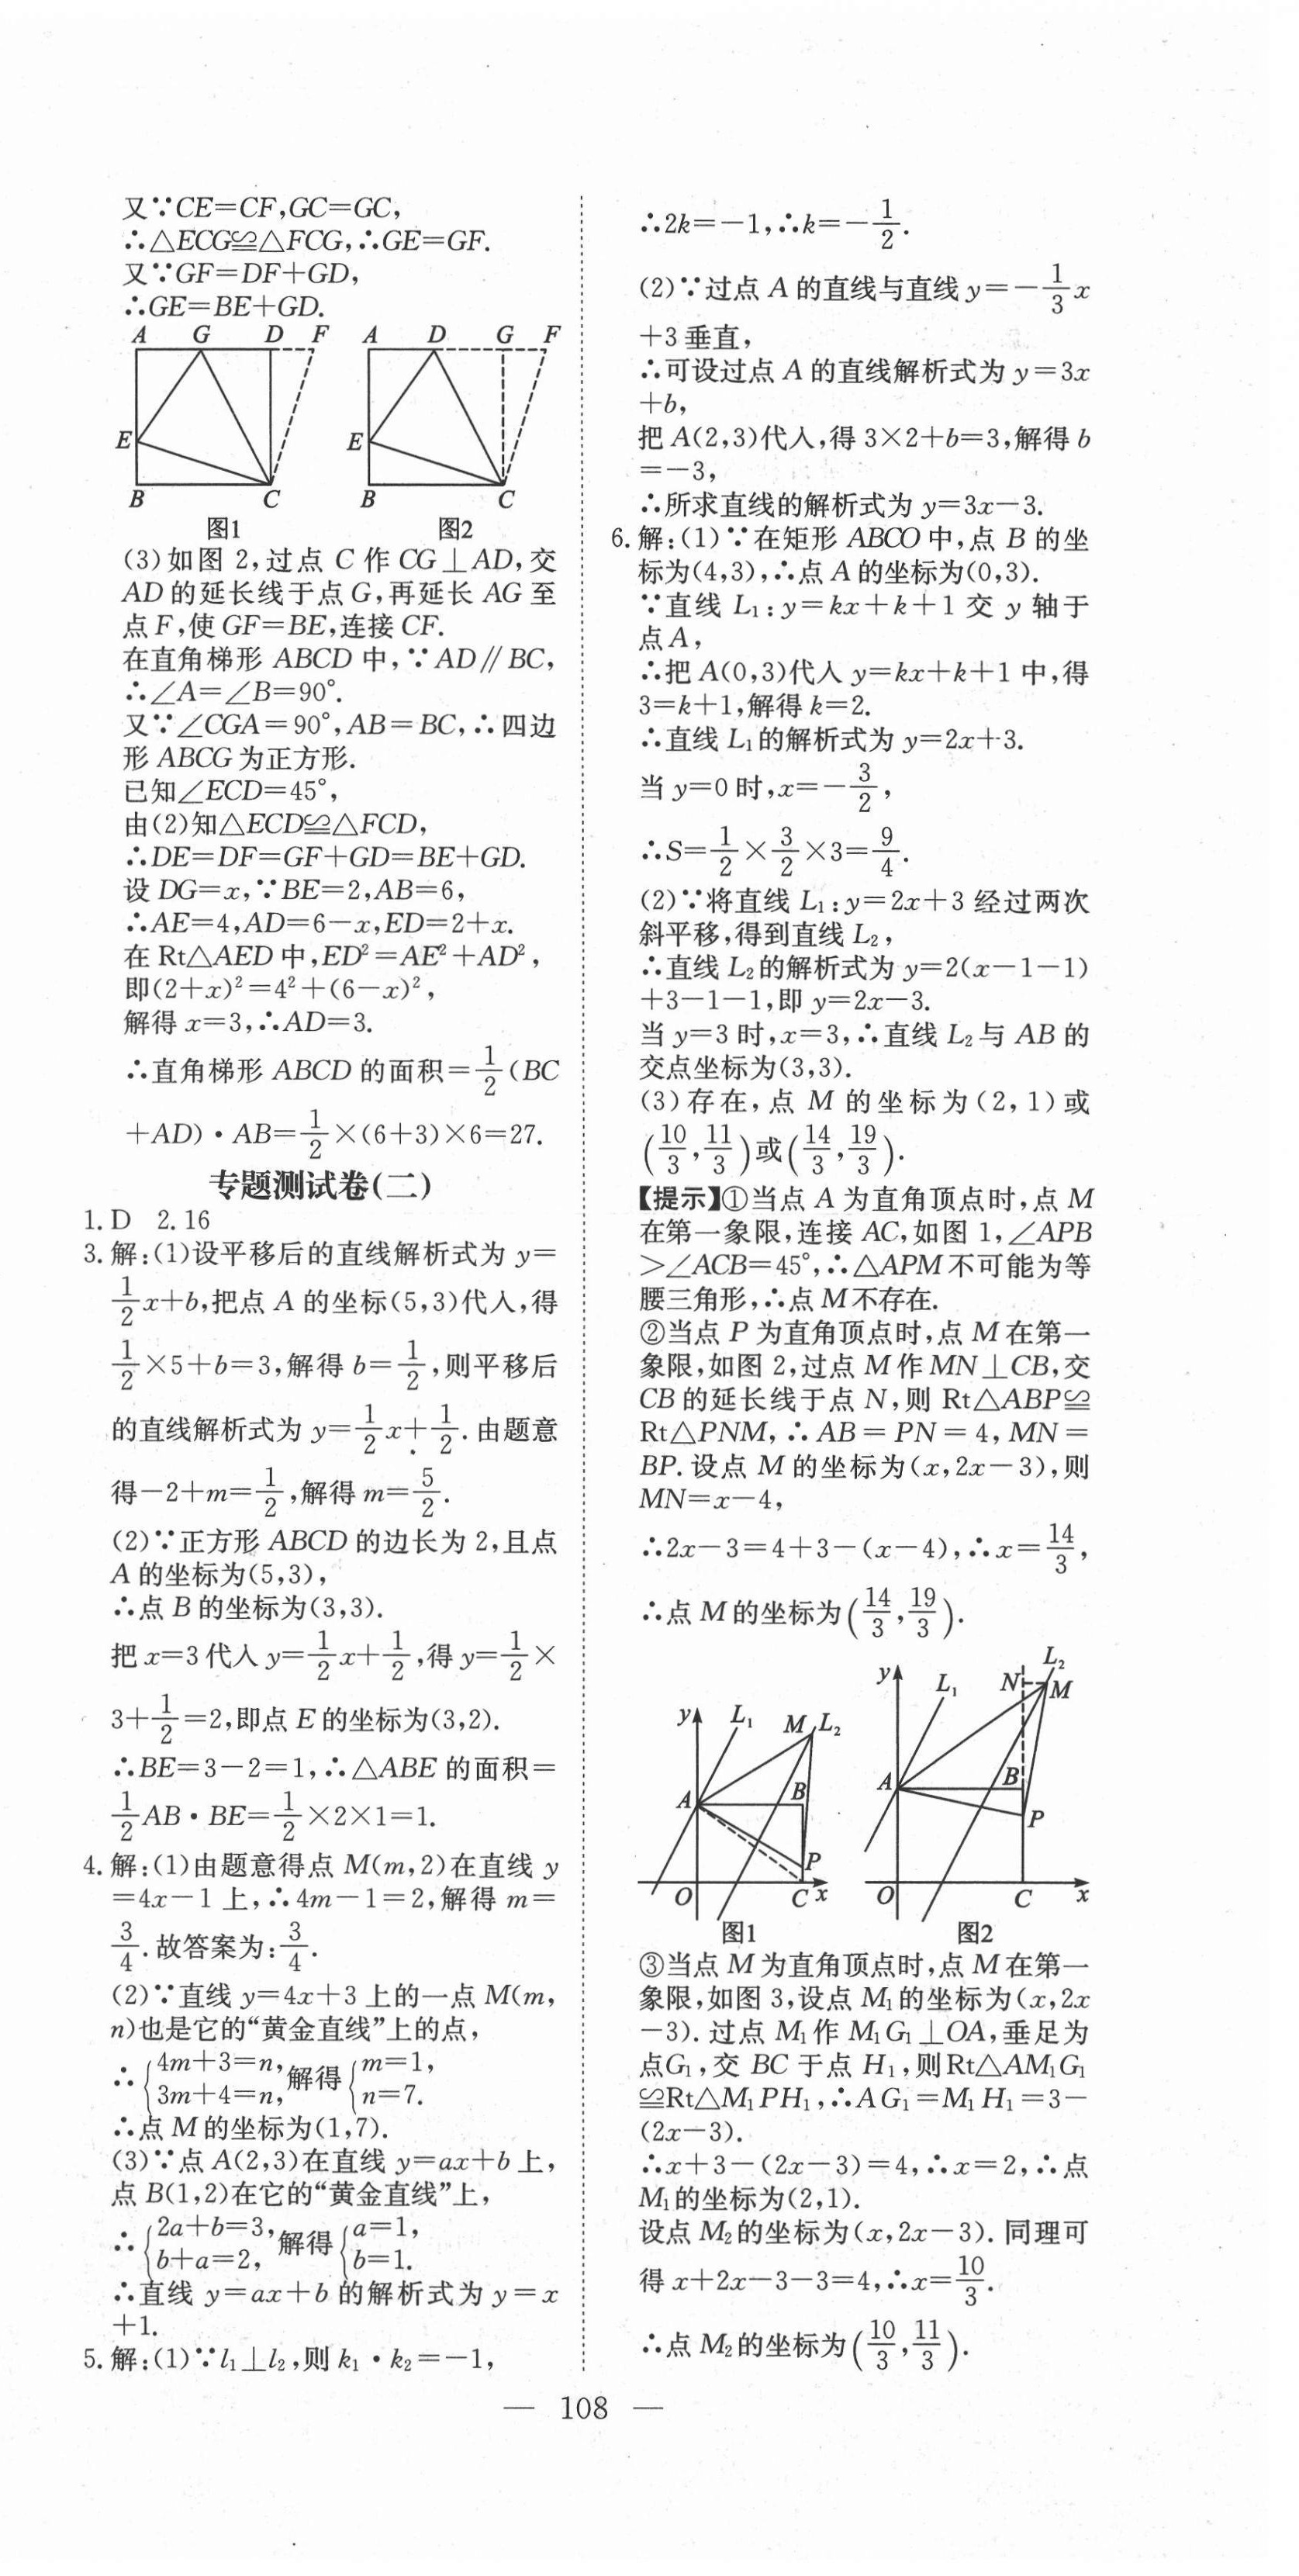 又∵CE=CF,GC=GC,
∴△ECG≌△FCG,∴GE=GF.
又∵GF=DF+GD,
∴GE=BE+GD.
A G D F A D G F
E E
B C B C
图1 图2
(3)如图 2,过点 C 作 CG⊥AD,交
AD 的延长线于点 G,再延长 AG 至
点 F,使 GF=BE,连接 CF.
在直角梯形 ABCD 中,∵AD∥BC,
∴∠A=∠B=90°.
又∵∠CGA=90°,AB=BC,∴四边
形 ABCG 为正方形.
已知∠ECD=45°,
由(2)知△ECD≌△FCD,
∴DE=DF=GF+GD=BE+GD.
设 DG=x,∵BE=2,AB=6,
∴AE=4,AD=6-x,ED=2+x.
在 Rt△AED 中,ED²=AE²+AD²,
即(2+x)²=4²+(6-x)²,
解得 x=3,∴AD=3.
∴直角梯形 ABCD 的面积=1/2(BC
+AD)·AB=1/2×(6+3)×6=27.
专题测试卷(二)
1. D 2. 16
3. 解:(1)设平移后的直线解析式为 y=
1/2x+b,把点 A 的坐标(5,3)代入,得
1/2×5+b=3,解得 b=1/2,则平移后
的直线解析式为 y=1/2x+1/2.由题意
得-2+m=1/2,解得 m=5/2.
(2)∵正方形 ABCD 的边长为 2,且点
A 的坐标为(5,3),
∴点 B 的坐标为(3,3).
把 x=3 代入 y=1/2x+1/2,得 y=1/2×
3+1/2=2,即点 E 的坐标为(3,2).
∴BE=3-2=1,∴△ABE 的面积=
1/2AB·BE=1/2×2×1=1.
4. 解:(1)由题意得点 M(m,2)在直线 y
=4x-1 上,∴4m-1=2,解得 m=
3/4.故答案为:3/4.
(2)∵直线 y=4x+3 上的一点 M(m,
n)也是它的“黄金直线”上的点,
∴{4m+3=n, 3m+4=n, 解得{m=1, n=7.
∴点 M 的坐标为(1,7).
(3)∵点 A(2,3)在直线 y=ax+b 上,
点 B(1,2)在它的“黄金直线”上,
∴{2a+b=3, b+a=2, 解得{a=1, b=1.
∴直线 y=ax+b 的解析式为 y=x
+1.
5. 解:(1)∵l₁⊥l₂,则 k₁·k₂=-1,
∴2k=-1,∴k=-1/2.
(2)∵过点 A 的直线与直线 y=-1/3x
+3 垂直,
∴可设过点 A 的直线解析式为 y=3x
+b,
把 A(2,3)代入,得 3×2+b=3,解得 b
=-3,
∴所求直线的解析式为 y=3x-3.
6. 解:(1)∵在矩形 ABCO 中,点 B 的坐
标为(4,3),∴点 A 的坐标为(0,3).
∵直线 L₁:y=kx+k+1 交 y 轴于
点 A,
∴把 A(0,3)代入 y=kx+k+1 中,得
3=k+1,解得 k=2.
∴直线 L₁的解析式为 y=2x+3.
当 y=0 时,x=-3/2,
∴S=1/2×3/2×3=9/4.
(2)∵将直线 L₁:y=2x+3 经过两次
斜平移,得到直线 L₂,
∴直线 L₂的解析式为 y=2(x-1-1)
+3-1-1,即 y=2x-3.
当 y=3 时,x=3,∴直线 L₂与 AB 的
交点坐标为(3,3).
(3)存在,点 M 的坐标为(2,1)或
(10/3,11/3)或(14/3,19/3).
【提示】①当点 A 为直角顶点时,点 M
在第一象限,连接 AC,如图 1,∠APB
>∠ACB=45°,∴△APM 不可能为等
腰三角形,∴点 M 不存在.
②当点 P 为直角顶点时,点 M 在第一
象限,如图 2,过点 M 作 MN⊥CB,交
CB 的延长线于点 N,则 Rt△ABP≌
Rt△PNM,∴AB=PN=4,MN=
BP.设点 M 的坐标为(x,2x-3),则
MN=x-4,
∴2x-3=4+3-(x-4),∴x=14/3,
∴点 M 的坐标为(14/3,19/3).
y L₁ M L₂ A B P O C x
y L₁ N L₂ M A B P O C x
图1 图2
③当点 M 为直角顶点时,点 M 在第一
象限,如图 3,设点 M₁的坐标为(x,2x
-3).过点 M₁作 M₁G₁⊥OA,垂足为
点G₁,交 BC 于点 H₁,则Rt△AM₁G₁
≌Rt△M₁PH₁,∴AG₁=M₁H₁=3-
(2x-3).
∴x+3-(2x-3)=4,∴x=2,∴点
M₁的坐标为(2,1).
设点 M₂的坐标为(x,2x-3).同理可
得 x+2x-3-3=4,∴x=10/3.
∴点 M₂的坐标为(10/3,11/3).
— 108 —